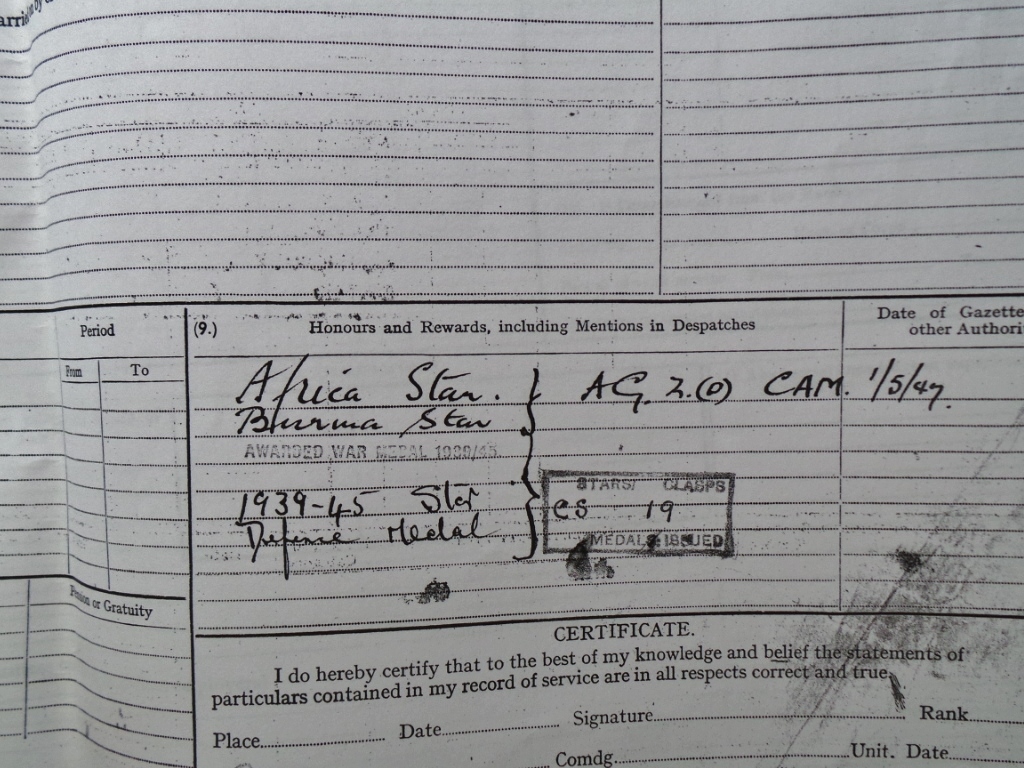 Period
(9.) Honours and Rewards, including Mentions in Despatches
Date of Gazette
other
From
To
Africa Star. } AG. 2.(O) CAM. 1/5/47.
Burma Star
AWARDED WAR MEDAL 1939/45
STARS/ CLASPS
1939-45 Star
cs 19
Defence Medal
MEDALS ISSUED
or Gratuity
CERTIFICATE.
I do hereby certify that to the best of my knowledge and belief the statements of
particulars contained in my record of service are in all respects correct and true.
Place Date Signature Rank
Comdg. Unit. Date